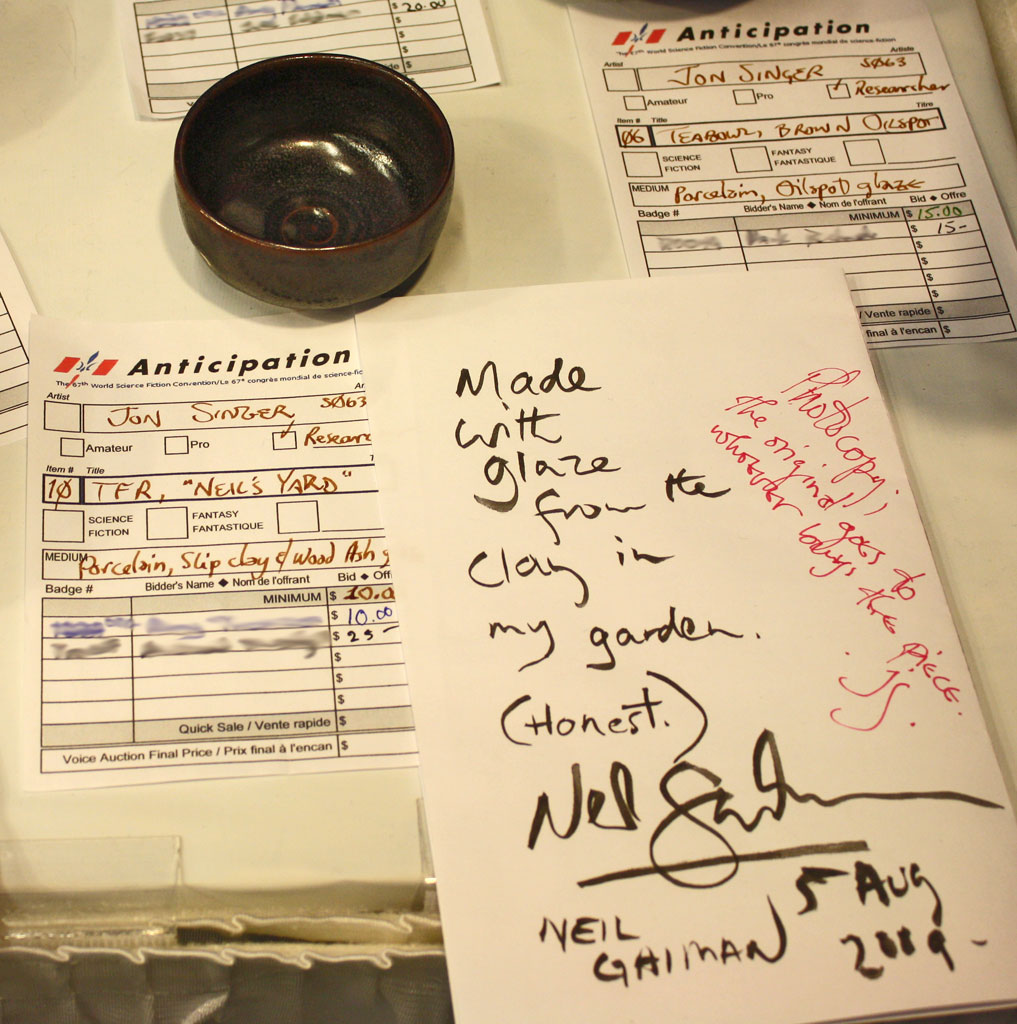 $ 20.00
$
$
$
$
Anticipation
The 67th World Science Fiction Convention/Le 67e congrès mondial de science-fiction
Artist Artiste
JON SINGER SØ63
Amateur Pro Researcher
Item # Title Titre
Ø6 TEABOWL, BROWN OILSPOT
SCIENCE FICTION FANTASY FANTASTIQUE
MEDIUM Porcelain, Oilspot glaze
Badge # Bidder's Name ◆ Nom de l'offrant Bid ◆ Offre
MINIMUM $ 15.00
$ 15-
$
$
$
/ Vente rapide $
final à l'encan $
Anticipation
The 67th World Science Fiction Convention/Le 67e congrès mondial de science-fic
Artist
JON SINGER SØ63
Amateur Pro Researc
Item # Title
1Ø TFR, "NEIL'S YARD"
SCIENCE FICTION FANTASY FANTASTIQUE
MEDIUM Porcelain, Slip clay & Wood Ash g
Badge # Bidder's Name ◆ Nom de l'offrant Bid ◆ Off
MINIMUM $ 10.0
$ 10.00
$ 25-
$
$
$
Quick Sale / Vente rapide $
Voice Auction Final Price / Prix final à l'encan $
Made
with
glaze
from the
clay in
my garden.
(Honest.)
Neil Gaiman
NEIL
GAIMAN
5 AUG
2009-
Photocopy;
the original goes to
whoever buys this piece.
JS.